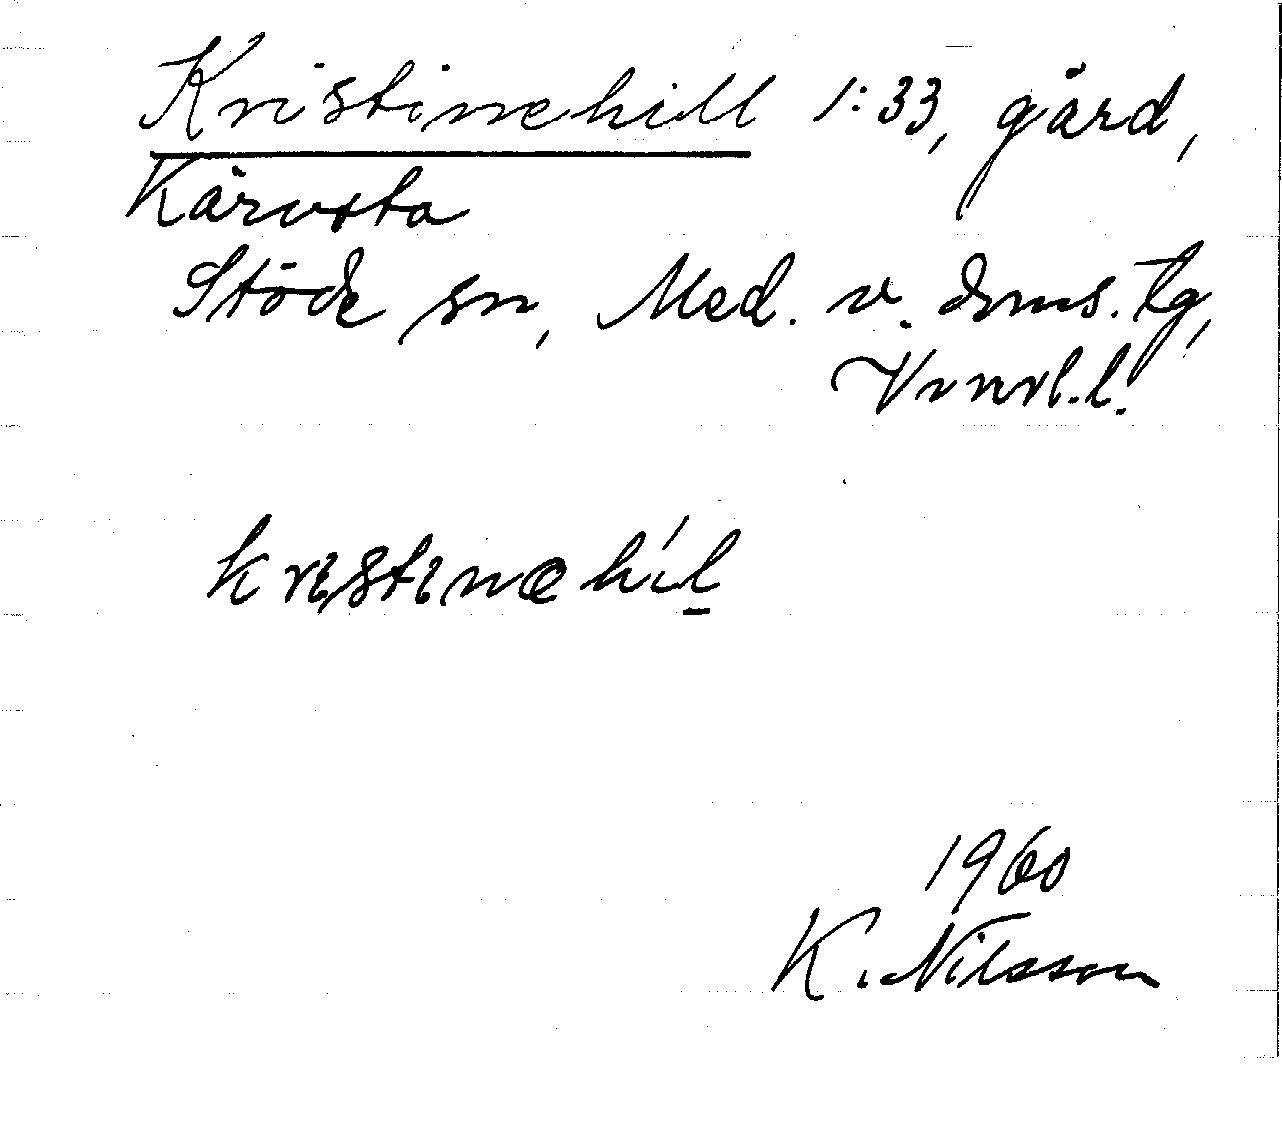 Kristinehill 1:33, gård,
Kärvsta
Stöde sn, Med. v. dms. tg,
Vrnrl.l.
kristinehíl
1960
K. Nilsson